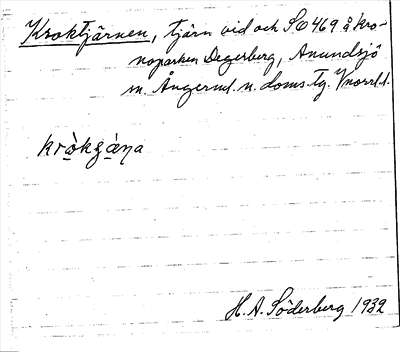 Kroktjärnen, tjärn vid och SO 469 å kro-
noparken Degerberg, Anundsjö
sn. Ångerml. n. doms. tg. V/norrl. l.
kròkʒàṇa
H. A. Söderberg 1932